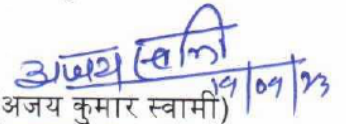 अजय स्वामी
14/09/23
अजय कुमार स्वामी)